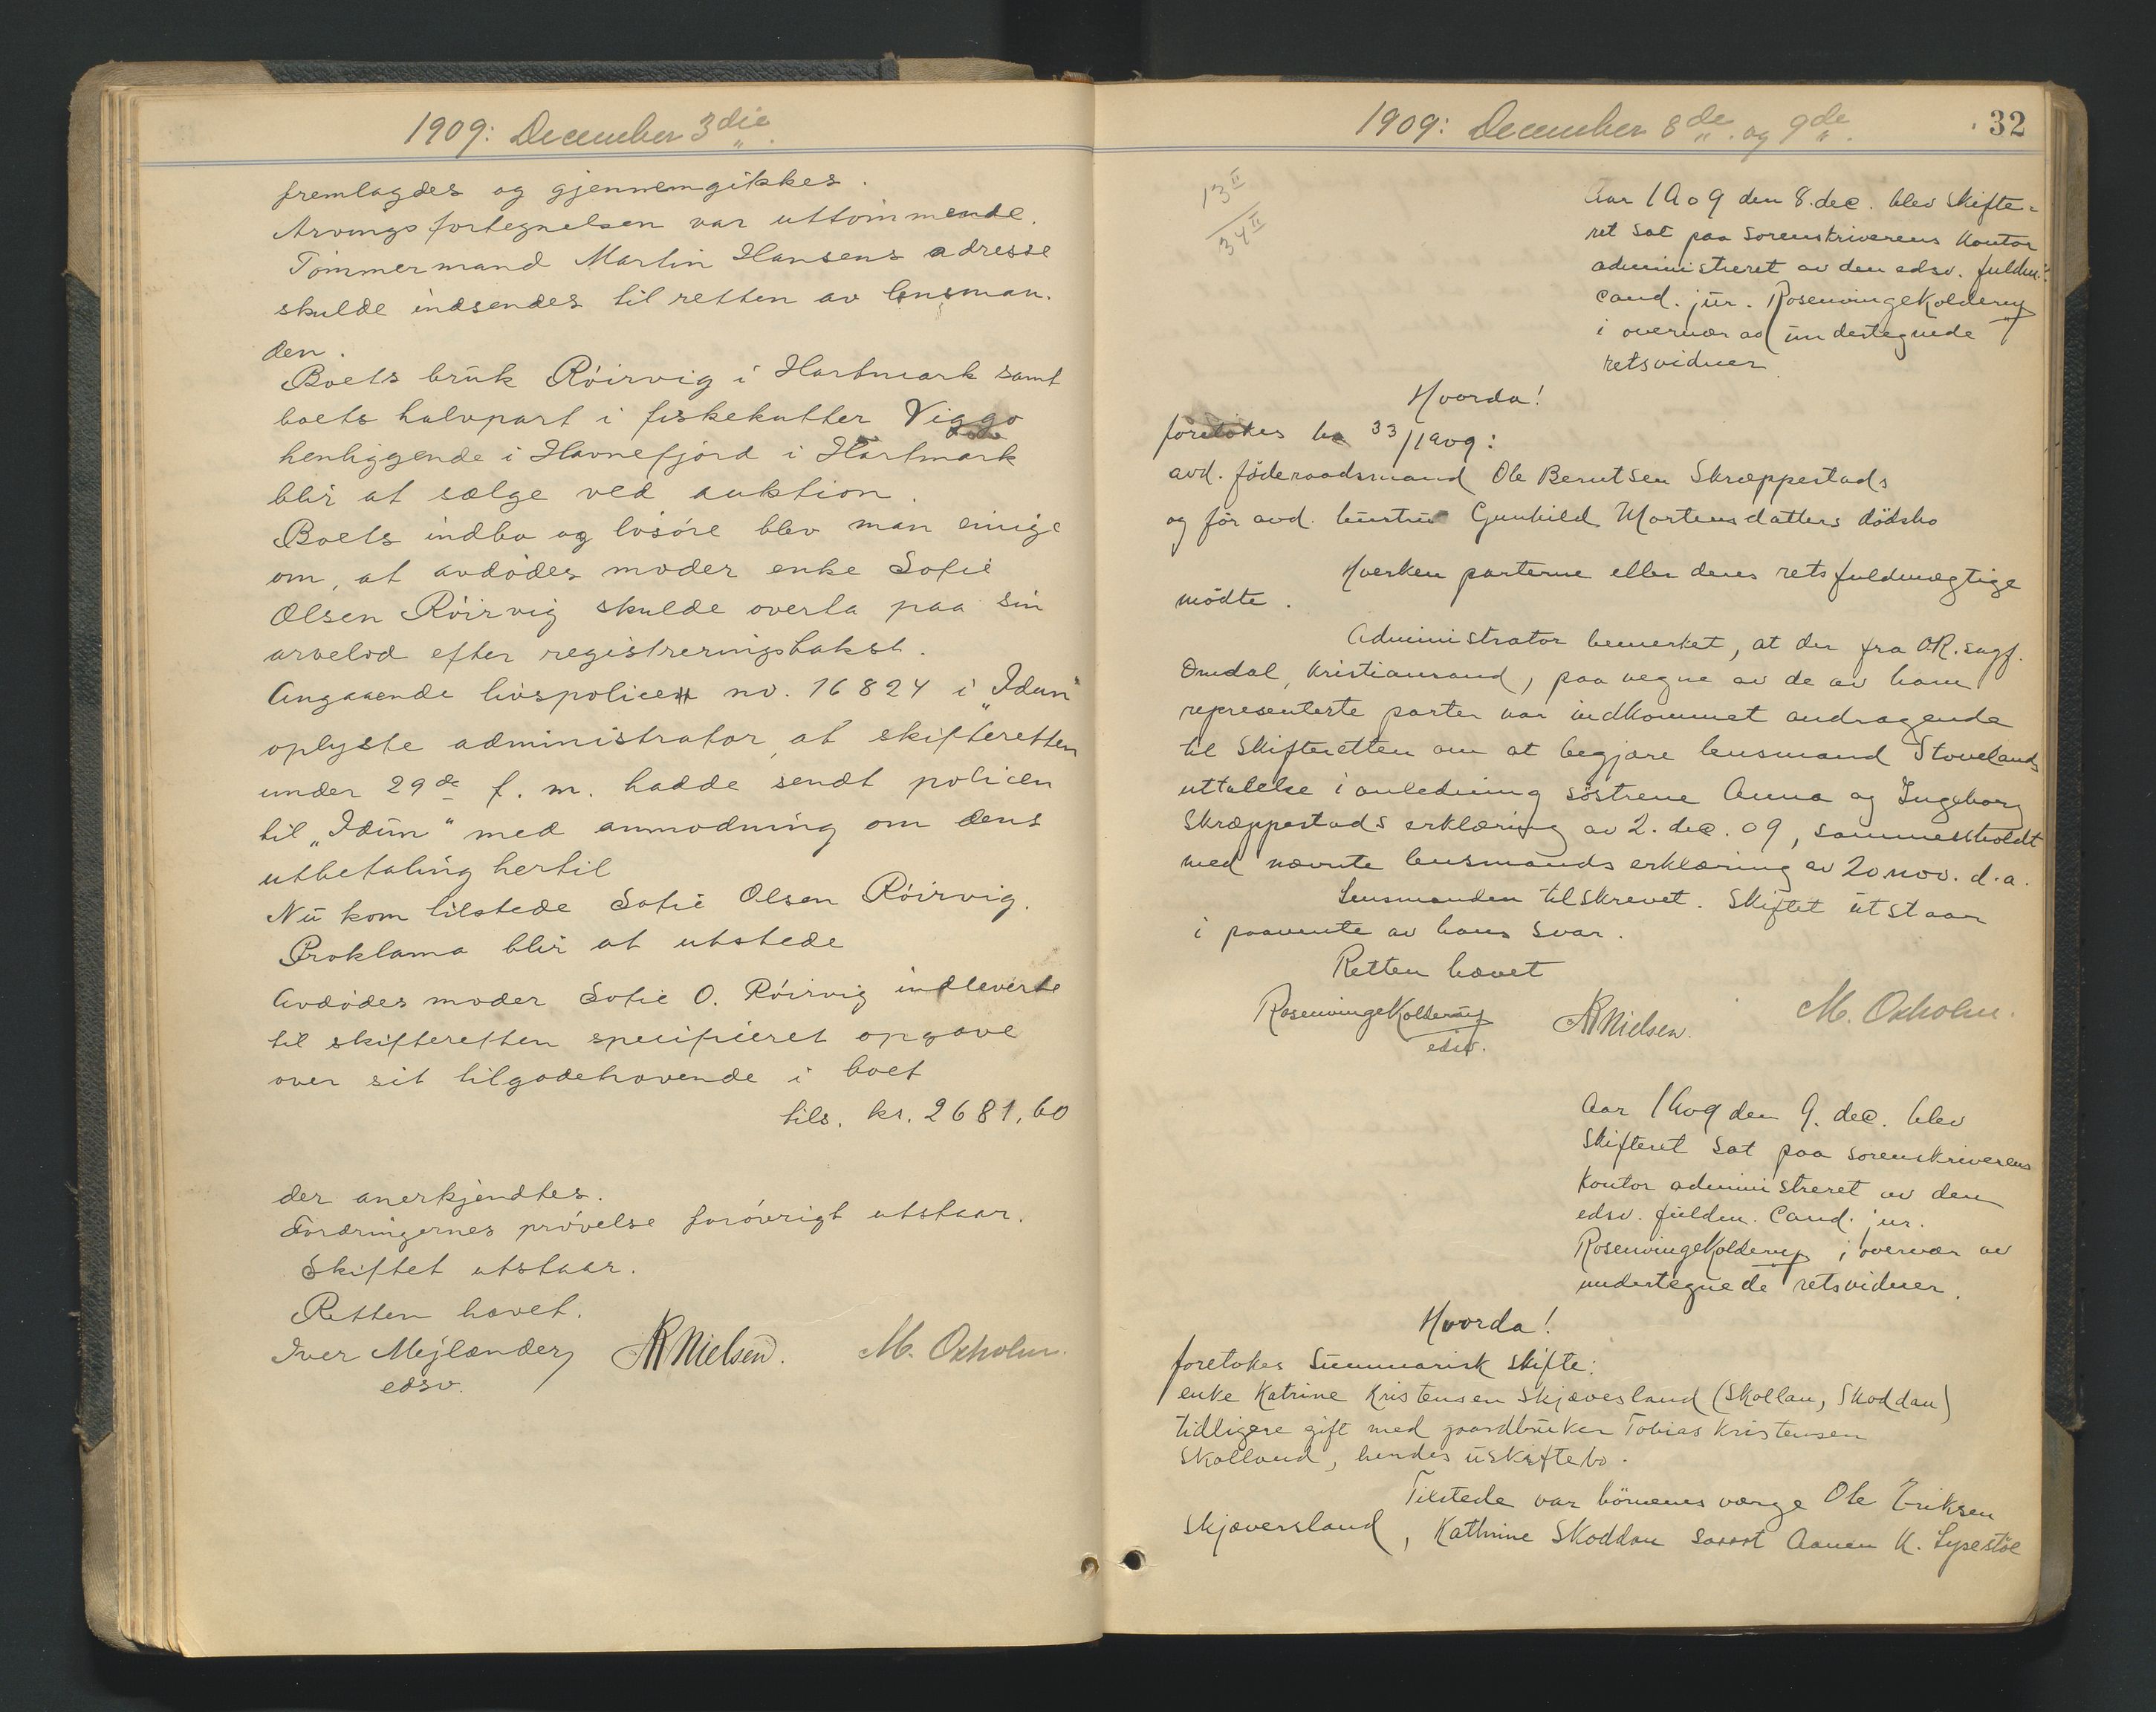 1909: December 3die.
fremlagdes og gjennemgikkes.
Arvingsfortegnelsen var uttømmende.
Tømmermand Martin Hansens adresse
skulde indsendes til retten av lensman-
den.
Boets bruk Röirvig i Hartmark samt
boets halvpart i fiskekutter Viggo
henliggende i Havnefjord i Hartmark
blir at sælge ved auktion.
Boets indbo og løsøre blev man enige
om, at avdødes moder enke Sofie
Olsen Röirvig skulde overta paa sin
arvelod efter registreringstakst.
Angaaende livspolicen no. 16824 i „Idun“
oplyste administrator, at skifteretten
under 29de f. m. hadde sendt policen
til „Idun“ med anmodning om dens
utbetaling hertil
Nu kom tilstede Sofie Olsen Röirvig.
Proklama blir at utstede
Avdødes moder Sofie O. Röirvig indleverte
til skifteretten specificeret opgave
over sit tilgodehavende i boet
tils. kr. 2681,60
der anerkjendtes.
Fordringernes prøvelse forøvrigt utstaar.
Skiftet utstaar.
Retten hævet.
Iver Mejlænder
edsv.
Nielsen.
M. Oxholm.
1909: December 8de og 9de.
32
13 II
34 II
Aar 1909 den 8. dec. blev skifte-
ret sat paa sorenskriverens kontor
administreret av den edsv. fuldm.
cand. jur. Rosenvinge Kolderup
i overvær av undertegnede
retsvidner
Hvorda!
foretokes 33/1909:
avd. föderaadsmand Ole Berntsen Skræppestads
og før avd. hustru Gunhild Mortensdatters dödsbo
Hverken parterne eller deres retsfuldmægtige
mödte.
Administrator bemerket, at der fra OR.sagf.
Omdal, Kristiansand, paa vegne av de av ham
representerte parter var indkommet andragende
til skifteretten om at begjære lensmand Stovelands
uttalelse i anledning söstrene Anna og Ingeborg
Skræppestads erklæring av 2. dec. 09, sammenholdt
med nævnte lensmands erklæring av 20. nov. d.a.
Lensmanden tilskrevet. Skiftet utstaar
i paavente av hans svar.
Retten hævet
Rosenvinge Kolderup
edsv.
Nielsen.
M. Oxholm.
Aar 1909 den 9. dec. blev
skifteret sat paa sorenskriverens
kontor administreret av den
edsv. fuldm. cand. jur.
Rosenvinge Kolderup i overvær av
undertegnede retsvidner.
Hvorda!
foretokes summarisk skifte:
enke Katrine Kristensen Skjævesland (Skollan, Skoddan)
tidligere gift med gaardbruker Tobias Kristensen
Skolland, hendes uskiftebo.
Tilstede var börnenes værge Ole Eriksen
Skjæversland, Kathrine Skoddan samt Aanen K. Lysestöl